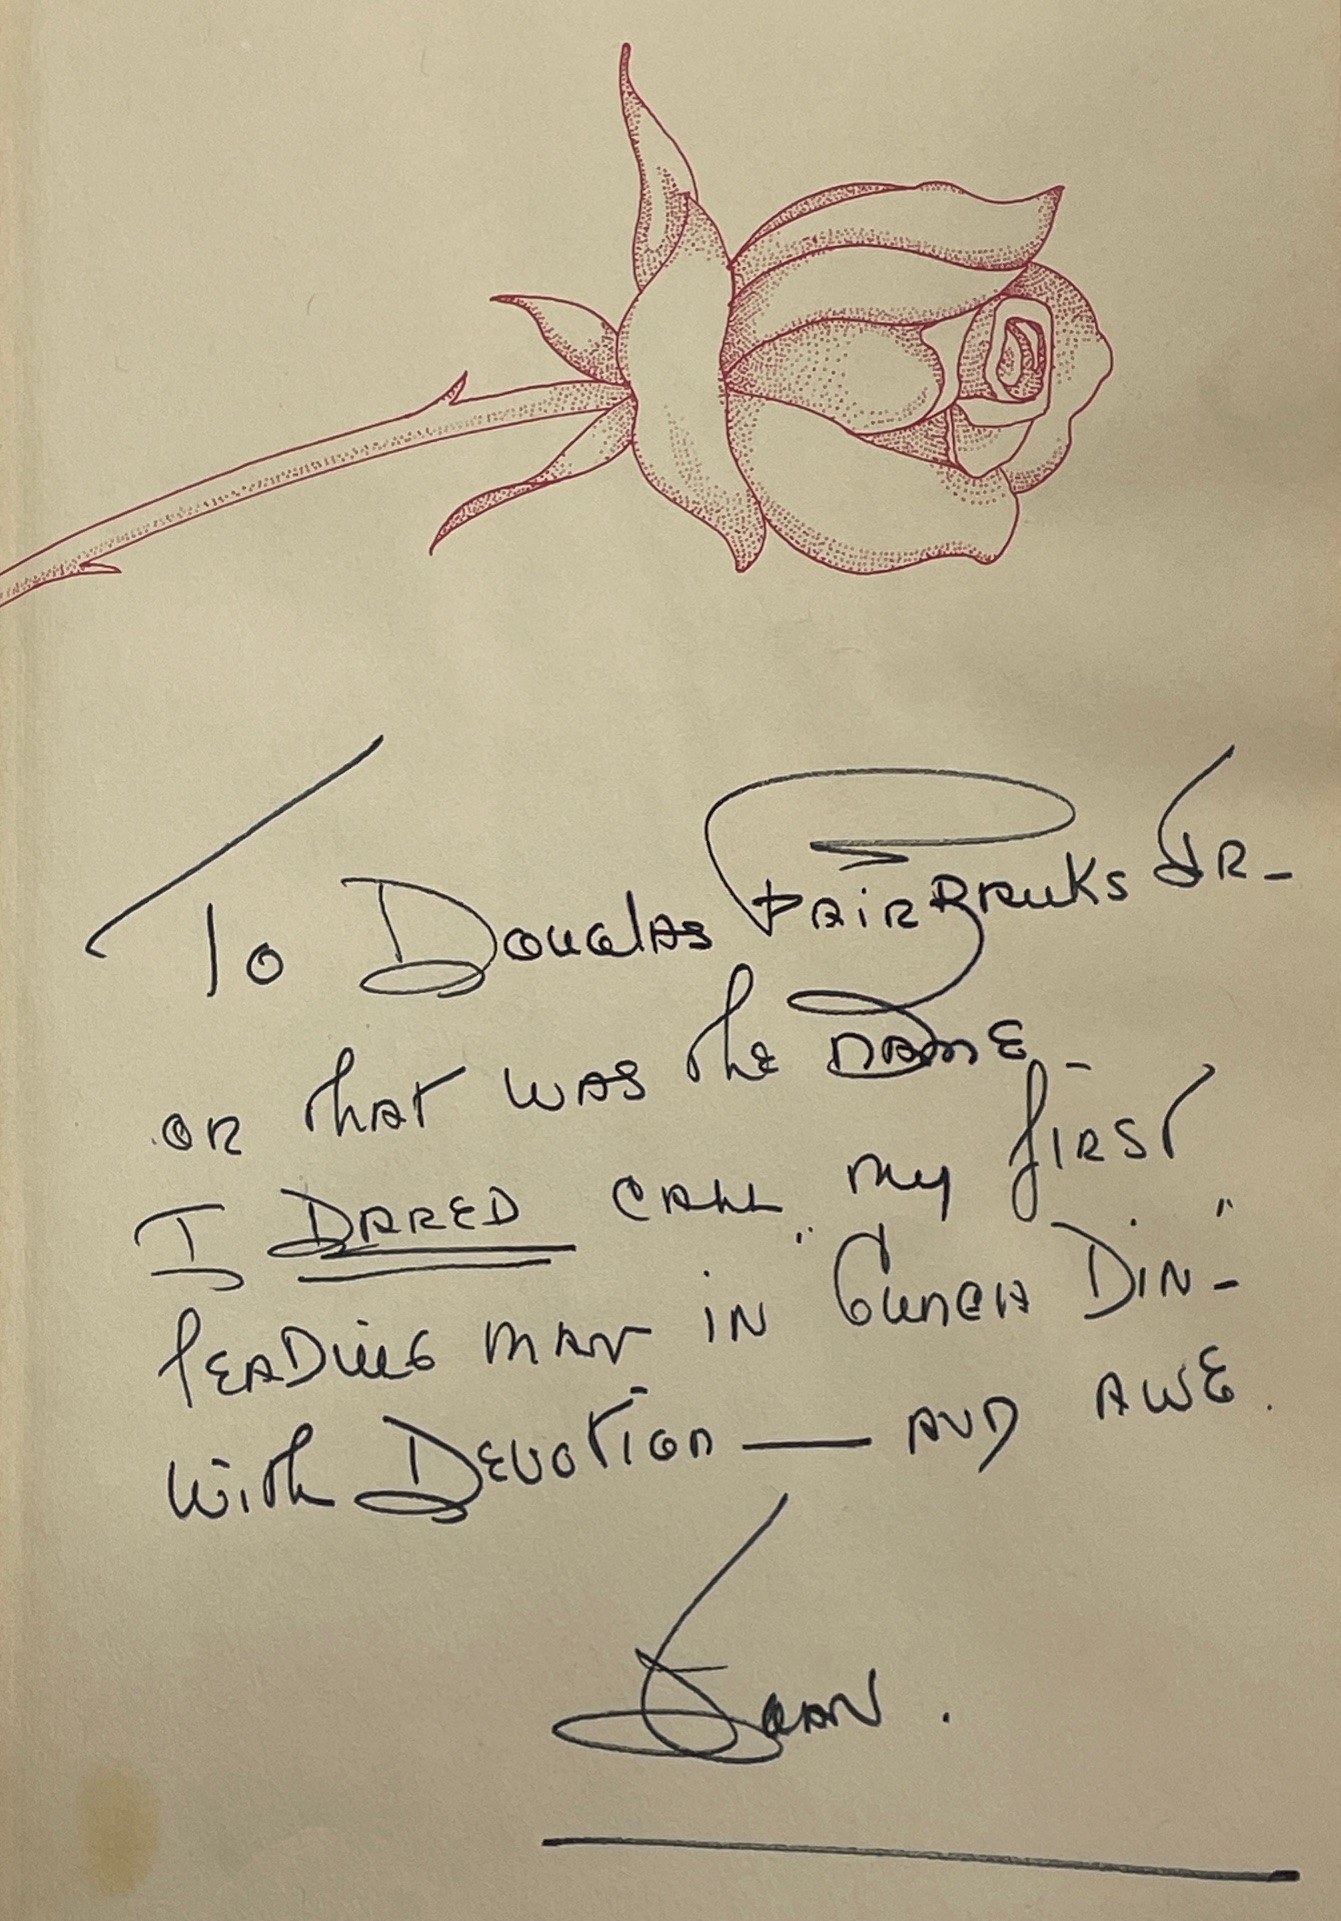 To Douglas Fairbanks Jr -
or that was the name -
I DARED call my first
leading man in "Gunga Din" -
with Devotion — and awe.
Joan.